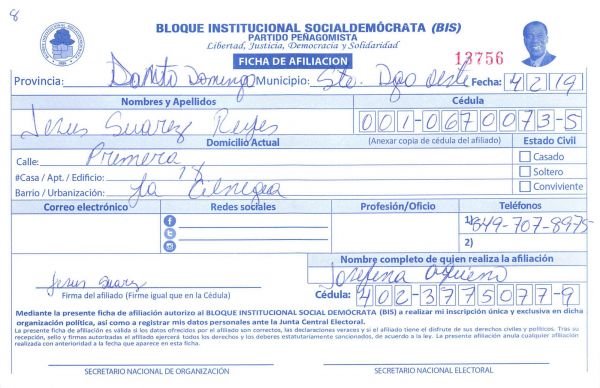 8
BLOQUE INSTITUCIONAL SOCIALDEMÓCRATA (BIS)
PARTIDO PEÑAGOMISTA
Libertad, Justicia, Democracia y Solidaridad
FICHA DE AFILIACION
13756
Provincia: Santo Domingo Municipio: Sto. Dgo oeste Fecha: 4 2 19
Nombres y Apellidos Cédula
Jesus Suarez Reyes 001-0670073-5
Domicilio Actual (Anexar copia de cédula del afiliado) Estado Civil
Calle: Primera Casado
#Casa / Apt. / Edificio: 18 Soltero
Barrio / Urbanización: La Cienega Conviviente
Correo electrónico Redes sociales Profesión/Oficio Teléfonos
1) 849-707-8975
2)
Nombre completo de quien realiza la afiliación
Jesus Suarez Josefina
Firma del afiliado (Firme igual que en la Cédula) Cédula: 402-3775077-9
Mediante la presente ficha de afiliación autorizo al BLOQUE INSTITUCIONAL SOCIAL DEMÓCRATA (BIS) a realizar mi inscripción única y exclusiva en dicha
organización política, así como a registrar mis datos personales ante la Junta Central Electoral.
La presente ficha de afiliación es válida si los datos ofrecidos por el afiliado son correctos, las declaraciones veraces y si el afiliado tiene el disfrute de sus derechos civiles y políticos. Tras su
recepción, sello y firmas autorizadas el afiliado ejercerá todos los derechos y los deberes estatutariamente sancionados, de acuerdo a la ley. La presente afiliación anula cualquier afiliación
realizada con anterioridad a la fecha que aparece en esta ficha.
SECRETARIO NACIONAL DE ORGANIZACIÓN SECRETARIO NACIONAL ELECTORAL